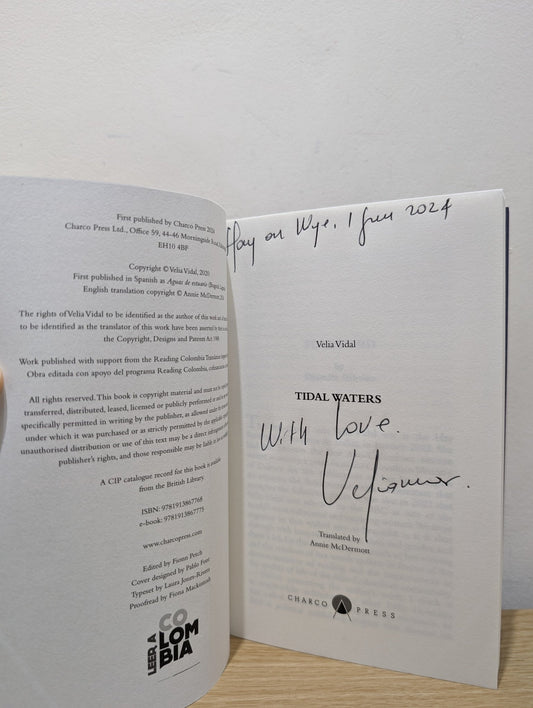 First published by Charco Press 2024
Charco Press Ltd., Office 59, 44-46 Morningside Road,
EH10 4BF
Copyright © Velia Vidal, 2020
First published in Spanish as Aguas de estuario
English translation copyright © Annie McDermott,
The rights of Velia Vidal to be identified as the author of this work
to be identified as the translator of this work have been asserted
the Copyright, Designs and Patents Act
Work published with support from the Reading Colombia
Obra editada con apoyo del programa Reading Colombia,
All rights reserved. This book is copyright material and must not be
transferred, distributed, leased, licensed or publicly performed or
specifically permitted in writing by the publisher, as allowed under
under which it was purchased or as strictly permitted by the applicable
unauthorised distribution or use of this text may be a direct infringement
publisher's rights, and those responsible may be liable in law
A CIP catalogue record for this book is available
from the British Library.
ISBN: 9781913867768
e-book: 9781913867775
www.charcopress.com
Edited by Fionn Petch
Cover designed by Pablo Font
Typeset by Laura Jones-Rivera
Proofread by Fiona Mackintosh
LEER A
COLOMBIA
Hay on Wye, 1 Jun 2024
Velia Vidal
TIDAL WATERS
With love.
Translated by
Annie McDermott
CHARCO PRESS